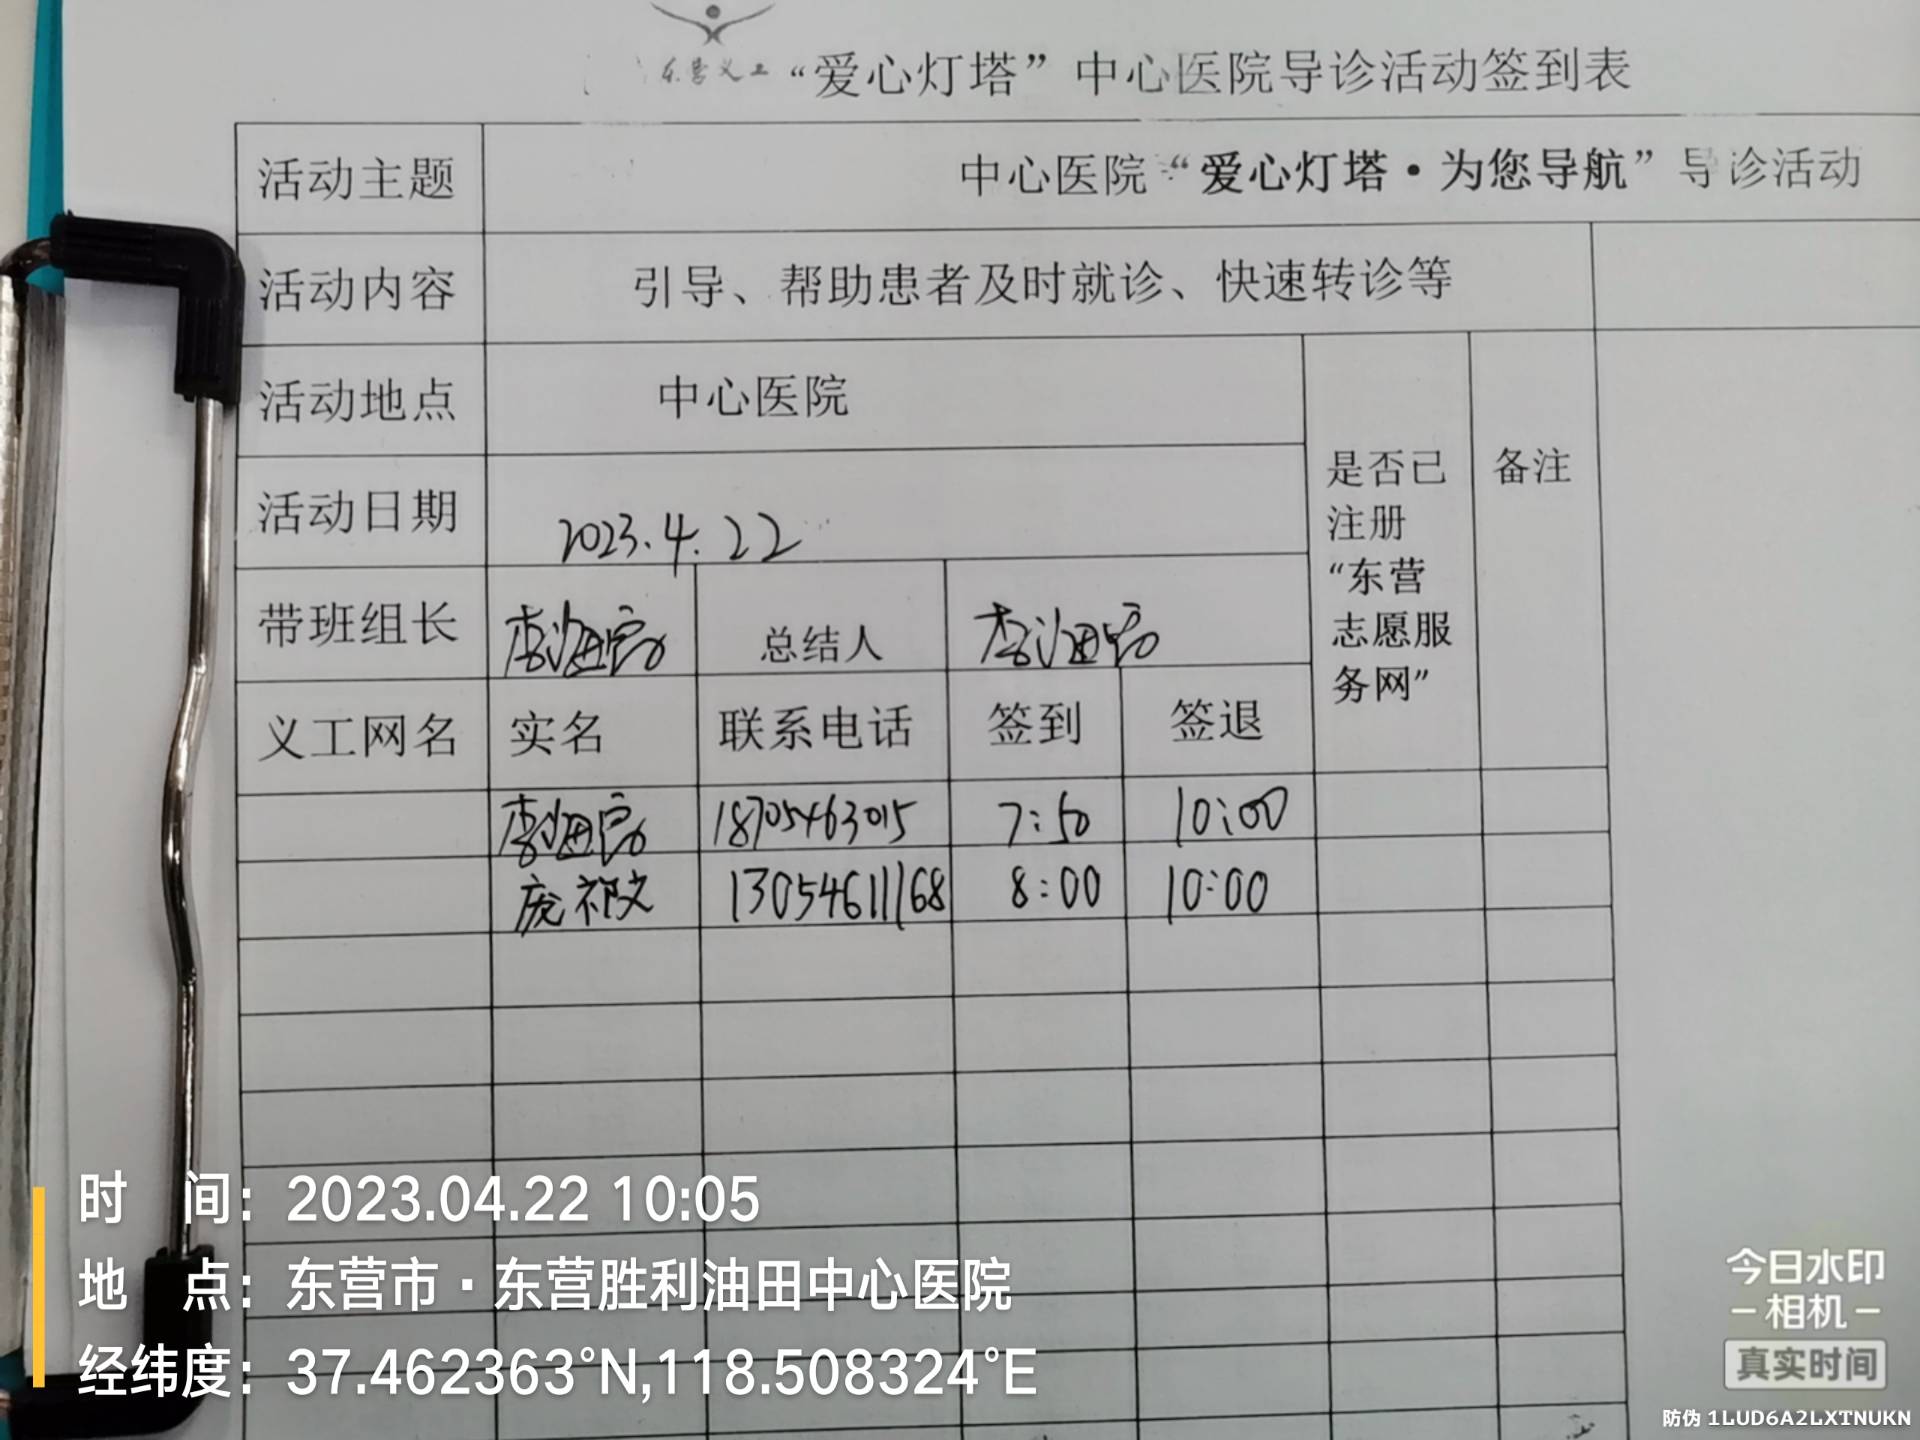 东营义工 “爱心灯塔” 中心医院导诊活动签到表
活动主题 中心医院“爱心灯塔·为您导航”导诊活动
活动内容 引导、帮助患者及时就诊、快速转诊等
活动地点 中心医院
活动日期 2023.4.22
是否已注册“东营志愿服务网” 备注
带班组长 总结人
义工网名 实名 联系电话 签到 签退
18705463015 7:50 10:00
庞祁文 13054611168 8:00 10:00
时 间：2023.04.22 10:05
地 点：东营市·东营胜利油田中心医院
经纬度：37.462363°N,118.508324°E
今日水印
相机
真实时间
防伪 1LUD6A2LXTNUKN